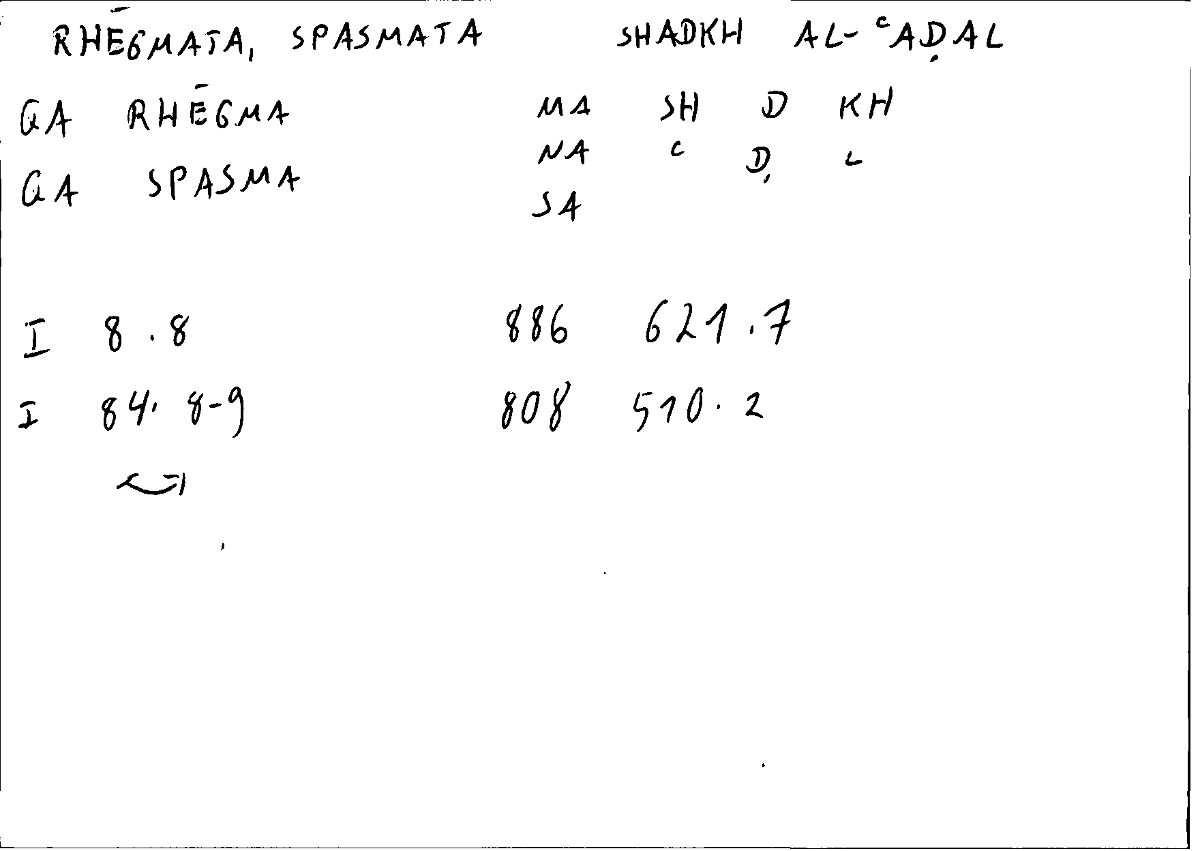 RHĒGMATA, SPASMATA SHADKH AL-ᶜAḌAL
GA RHĒGMA MA SH D KH
NA ᶜ Ḍ L
GA SPASMA
SA
I 8.8 886 621.7
I 84. 8-9 808 510.2